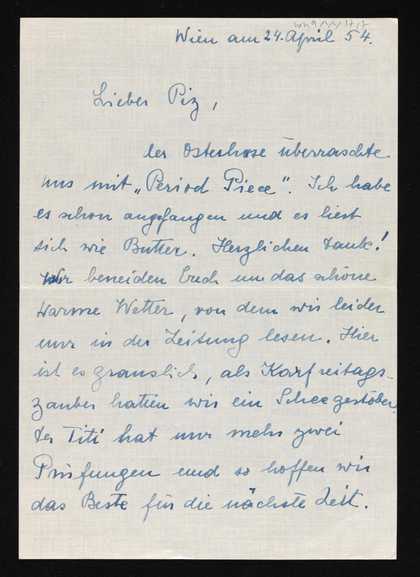 Wien am 24. April 54.
Lieber Piz,
der Osterhase überraschte
uns mit „Period Piece". Ich habe
es schon angefangen und es liest
sich wie Butter. Herzlichen Dank!
Wir beneiden Euch um das schöne
warme Wetter, von dem wir leider
nur in der Zeitung lesen. Hier
ist es grauslich, als Karfreitags-
zauber hatten wir ein Schneegestöber.
Der Titi hat nur mehr zwei
Prüfungen und so hoffen wir
das Beste für die nächste Zeit.